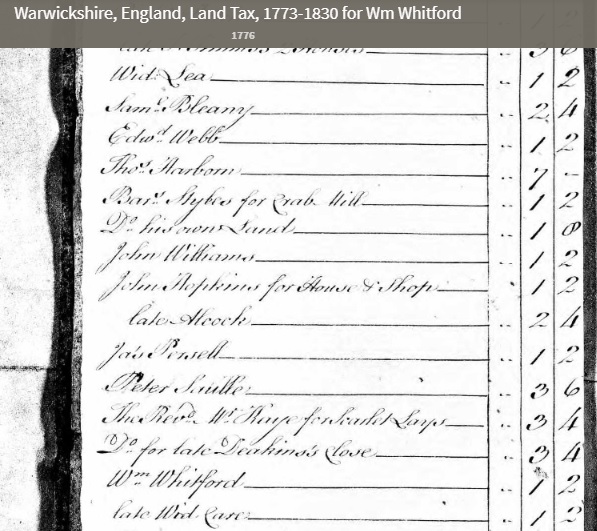 Warwickshire, England, Land Tax, 1773-1830 for Wm Whitford
1776
late Houses 3 6
Wid: Lea 1 2
Saml. Bleany 2 4
Edwd. Webb 1 2
Thos. Harborn 7 -
Barw. Stykes for Crab Mill 1 2
Do. his own Land 1 8
John Williams 1 2
John Hopkins for House & Shop 1 2
late Alcock 2 4
Jas. 1 2
Peter 3 6
The Revd. Mr. Kaye for Scarlet Lays 3 4
Do. for late Deakins's Close 3 4
Wm. Whitford 1 2
late Wid. Care 1 2